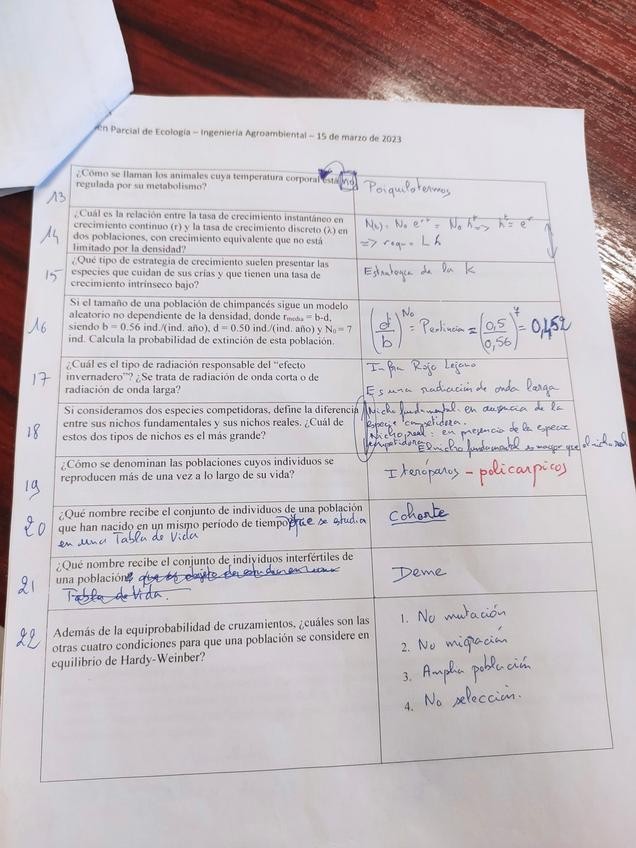 en Parcial de Ecología – Ingeniería Agroambiental – 15 de marzo de 2023
13
¿Cómo se llaman los animales cuya temperatura corporal está no
regulada por su metabolismo?
Poiquilotermos
14
¿Cuál es la relación entre la tasa de crecimiento instantáneo en
crecimiento continuo (r) y la tasa de crecimiento discreto (λ) en
dos poblaciones, con crecimiento equivalente que no está
limitado por la densidad?
15
¿Qué tipo de estrategia de crecimiento suelen presentar las
especies que cuidan de sus crías y que tienen una tasa de
crecimiento intrínseco bajo?
Estrategia de la K
16
Si el tamaño de una población de chimpancés sigue un modelo
aleatorio no dependiente de la densidad, donde rmedia = b-d,
siendo b = 0.56 ind./(ind. año), d = 0.50 ind./(ind. año) y N0 = 7
ind. Calcula la probabilidad de extinción de esta población.
(d/b)^No = Pextinción = (0,5/0,56)^7 = 0,452
17
¿Cuál es el tipo de radiación responsable del “efecto
invernadero”? ¿Se trata de radiación de onda corta o de
radiación de onda larga?
Infra Rojo Lejano
Es una radiación de onda larga
18
Si consideramos dos especies competidoras, define la diferencia
entre sus nichos fundamentales y sus nichos reales. ¿Cuál de
estos dos tipos de nichos es el más grande?
Nicho fundamental: en ausencia de la
especie competidora.
Nicho real: en presencia de la especie
competidora
El nicho fundamental es mayor que el nicho real
19
¿Cómo se denominan las poblaciones cuyos individuos se
reproducen más de una vez a lo largo de su vida?
Iteróparos – policarpicos
20
¿Qué nombre recibe el conjunto de individuos de una población
que han nacido en un mismo período de tiempo que se estudia
en una Tabla de Vida
Cohorte
21
¿Qué nombre recibe el conjunto de individuos interfértiles de
una población? que es objeto de estudio en una
Tabla de Vida.
Deme
22
Además de la equiprobabilidad de cruzamientos, ¿cuáles son las
otras cuatro condiciones para que una población se considere en
equilibrio de Hardy-Weinber?
1. No mutación
2. No migración
3. Amplia población
4. No selección.